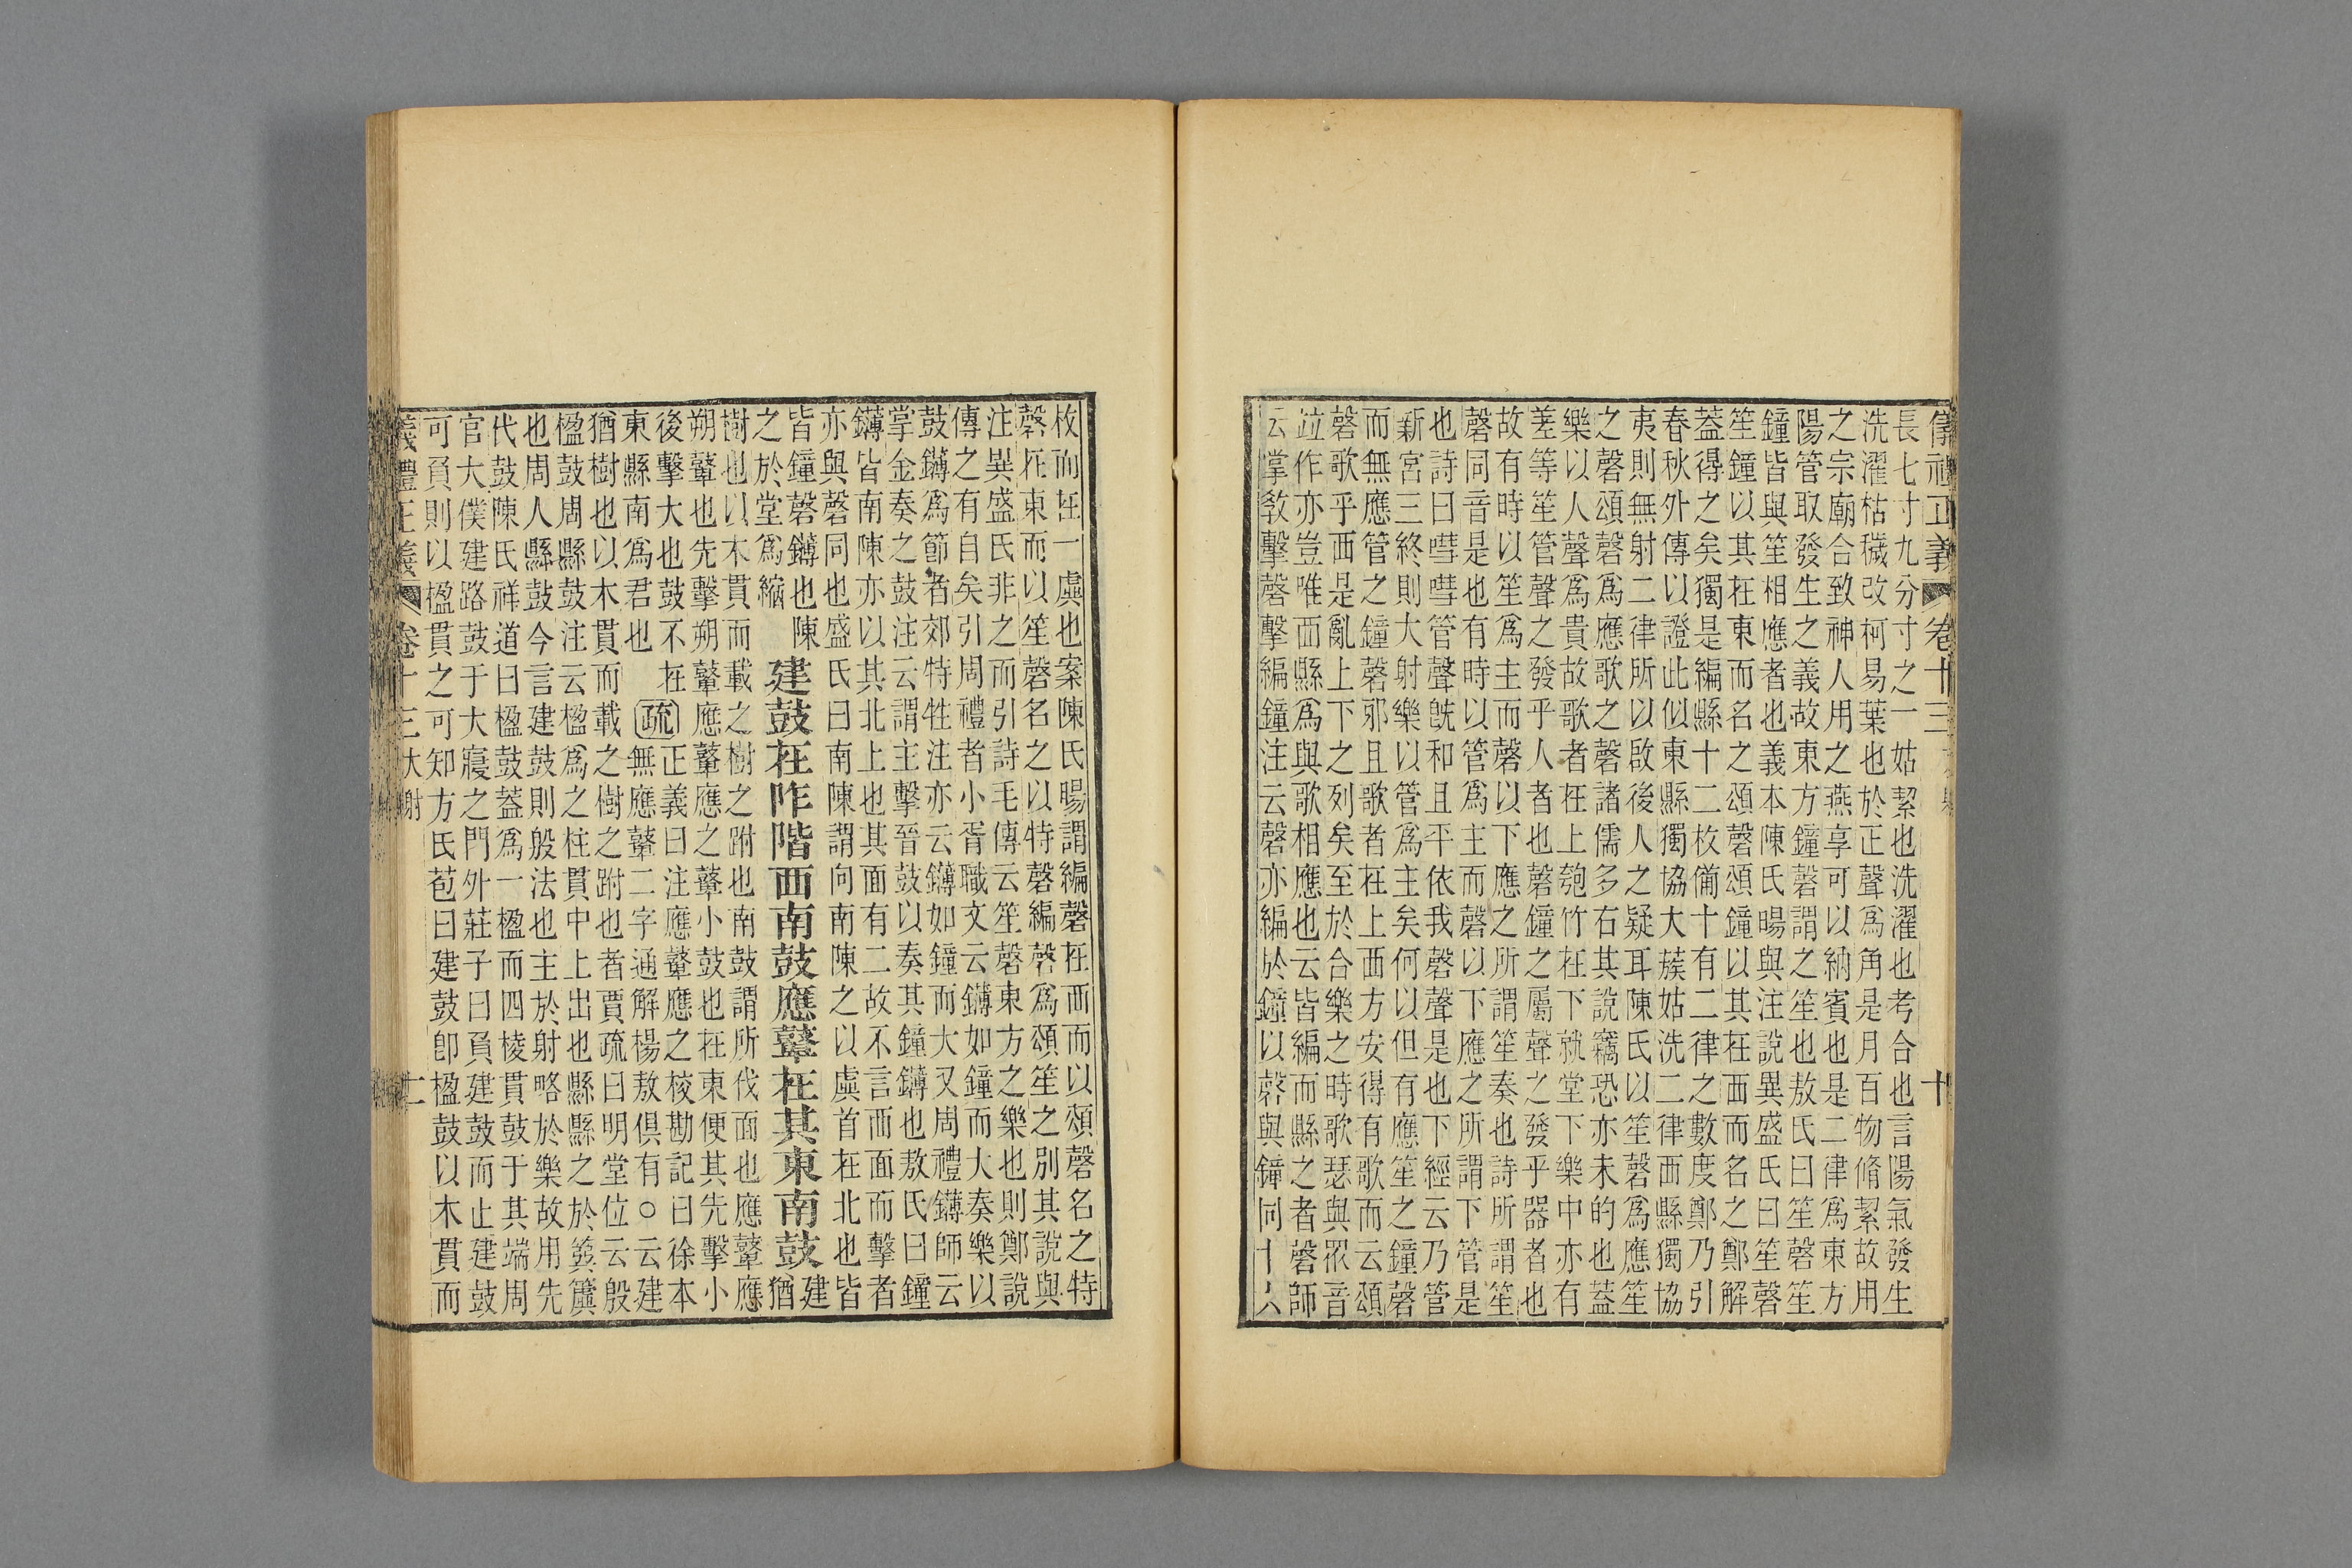 儀禮正義 卷十三 十
長七寸九分寸之一姑絜也洗濯也考合也言陽氣發生
洗濯枯穢改柯易葉也於正聲爲角是月百物脩絜故用
之宗廟合致神人用之燕享可以納賓也是二律爲東方
陽管取發生之義故東方鐘磬謂之笙也敖氏曰笙磬笙
鐘皆與笙相應者也義本陳氏暘與注說異盛氏曰笙磬
笙鐘以其在東而名之頌磬頌鐘以其在西而名之鄭解
蓋得之矣獨是編縣十二枚備十有二律之數度鄭乃引
春秋外傳以證此似東縣獨協大蔟姑洗二律西縣獨協
夷則無射二律所以啟後人之疑耳陳氏以笙磬爲應笙
之磬頌磬爲應歌之磬諸儒多右其說竊恐亦未的也蓋
樂以人聲爲貴故歌者在上匏竹在下就堂下樂中亦有
差等笙管聲之發乎人者也磬鐘之屬聲之發乎器者也
故有時以笙爲主而磬以下應之所謂笙奏也詩所謂笙
磬同音是也有時以管爲主而磬以下應之所謂下管是
也詩曰嘒嘒管聲旣和且平依我磬聲是也下經云乃管
新宮三終則大射樂以管爲主矣何以但有應笙之鐘磬
而無應管之鐘磬邪且歌者在上西方安得有歌而云頌
磬歌乎西是亂上下之列矣至於合樂之時歌瑟與眾音
竝作亦豈唯西縣爲與歌相應也云皆編而縣之者磬師
云掌敎擊磬擊編鐘注云磬亦編於鐘以磬與鐘同十六
枚而在一虡也案陳氏暘謂編磬在西而以頌磬名之特
磬在東而以笙磬名之以特磬編磬爲頌笙之別其說與
注異盛氏非之而引詩毛傳云笙磬東方之樂也則鄭說
傳之有自矣引周禮者小胥職文云鑮如鐘而大奏樂以
鼓鑮爲節者郊特牲注亦云鑮如鐘而大又周禮鑮師云
掌金奏之鼓注云謂主擊晉鼓以奏其鐘鑮也敖氏曰鐘
鑮皆南陳亦以其北上也其面有二故不言西面而擊者
亦與磬同也盛氏曰南陳謂向南陳之以虡首在北也皆
皆鐘磬鑮也陳
之於堂爲縮
建鼓在阼階西南鼓應鼙在其東南鼓
建
猶
樹也以木貫而載之樹之跗也南鼓謂所伐面也應鼙應
朔鼙也先擊朔鼙應鼙應之鼙小鼓也在東便其先擊小
後擊大也鼓不在
東縣南爲君也
疏
正義曰注應鼙應之校勘記曰徐本
無應鼙二字通解楊敖俱有○云建
猶樹也以木貫而載之樹之跗也者賈疏曰明堂位云殷
楹鼓周縣鼓注云楹爲之柱貫中上出也縣縣之於簨簴
也周人縣鼓今言建鼓則殷法也主於射略於樂故用先
代鼓陳氏祥道曰楹鼓蓋爲一楹而四棱貫鼓于其端周
官大僕建路鼓于大寢之門外莊子曰負建鼓而止建鼓
可負則以楹貫之可知方氏苞曰建鼓卽楹鼓以木貫而
儀禮正義 卷十三大射